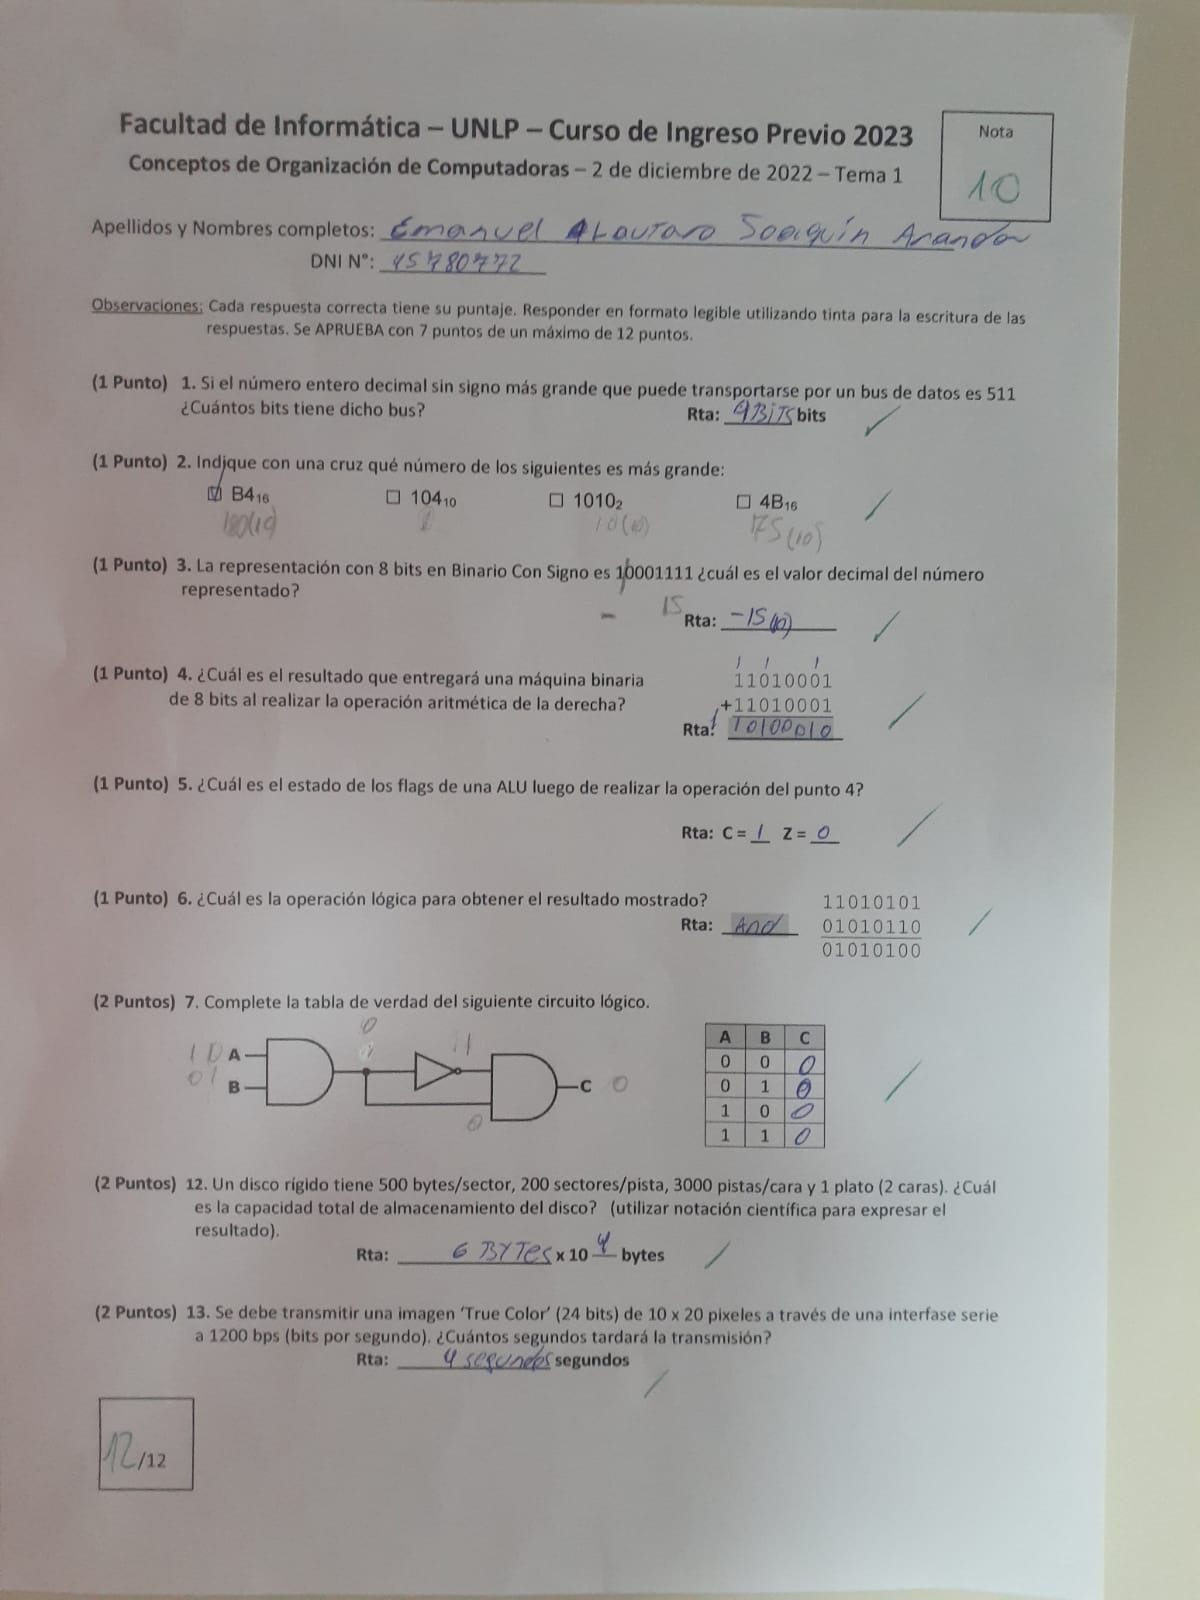 Facultad de Informática – UNLP – Curso de Ingreso Previo 2023
Nota
Conceptos de Organización de Computadoras – 2 de diciembre de 2022 – Tema 1
10
Apellidos y Nombres completos: Emanuel Lautaro Joaquín Aranda
DNI N°: 45780772
Observaciones: Cada respuesta correcta tiene su puntaje. Responder en formato legible utilizando tinta para la escritura de las
respuestas. Se APRUEBA con 7 puntos de un máximo de 12 puntos.
(1 Punto) 1. Si el número entero decimal sin signo más grande que puede transportarse por un bus de datos es 511
¿Cuántos bits tiene dicho bus? Rta: 9 BiTS bits
(1 Punto) 2. Indique con una cruz qué número de los siguientes es más grande:
B4₁₆ 104₁₀ 1010₂ 4B₁₆
180(10) 10(10) 75(10)
(1 Punto) 3. La representación con 8 bits en Binario Con Signo es 10001111 ¿cuál es el valor decimal del número
representado?
- 15 Rta: -15(10)
1 1 1
(1 Punto) 4. ¿Cuál es el resultado que entregará una máquina binaria 11010001
de 8 bits al realizar la operación aritmética de la derecha? +11010001
Rta: 1 10100010
(1 Punto) 5. ¿Cuál es el estado de los flags de una ALU luego de realizar la operación del punto 4?
Rta: C = 1 Z = 0
(1 Punto) 6. ¿Cuál es la operación lógica para obtener el resultado mostrado? 11010101
Rta: And 01010110
01010100
(2 Puntos) 7. Complete la tabla de verdad del siguiente circuito lógico.
0
1 0 A 1
0 1 B
C 0
0
A B C
0 0 0
0 1 0
1 0 0
1 1 0
(2 Puntos) 12. Un disco rígido tiene 500 bytes/sector, 200 sectores/pista, 3000 pistas/cara y 1 plato (2 caras). ¿Cuál
es la capacidad total de almacenamiento del disco? (utilizar notación científica para expresar el
resultado).
Rta: 6 BYTes x 10 bytes
(2 Puntos) 13. Se debe transmitir una imagen 'True Color' (24 bits) de 10 x 20 pixeles a través de una interfase serie
a 1200 bps (bits por segundo). ¿Cuántos segundos tardará la transmisión?
Rta: 4 segundos segundos
12/12